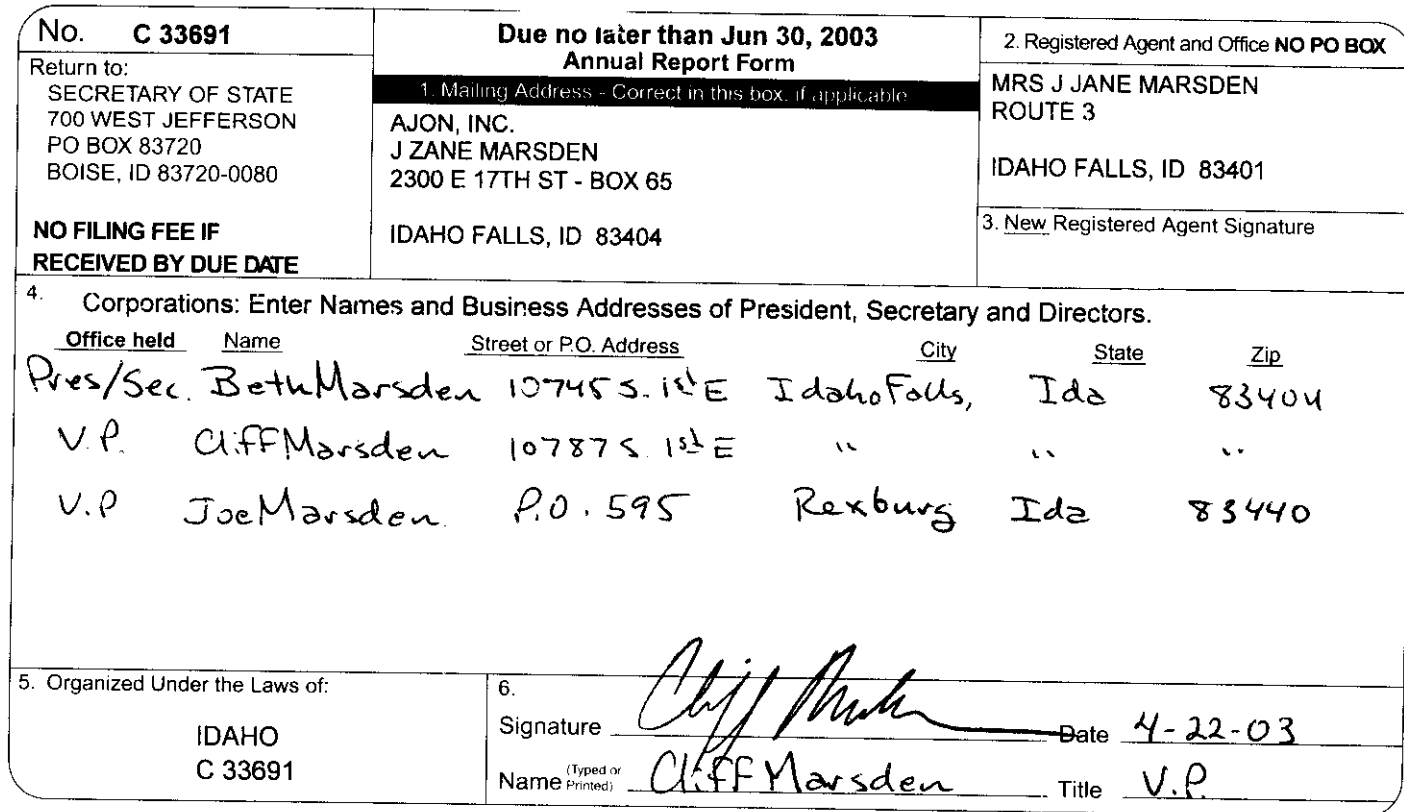 No. C 33691
Return to:
SECRETARY OF STATE
700 WEST JEFFERSON
PO BOX 83720
BOISE, ID 83720-0080
NO FILING FEE IF
RECEIVED BY DUE DATE
Due no later than Jun 30, 2003
Annual Report Form
1. Mailing Address - Correct in this box, if applicable
AJON, INC.
J ZANE MARSDEN
2300 E 17TH ST - BOX 65
IDAHO FALLS, ID 83404
2. Registered Agent and Office NO PO BOX
MRS J JANE MARSDEN
ROUTE 3
IDAHO FALLS, ID 83401
3. New Registered Agent Signature
4. Corporations: Enter Names and Business Addresses of President, Secretary and Directors.
Office held Name Street or P.O. Address City State Zip
Pres/Sec. Beth Marsden 10745 S. 1st E Idaho Falls, Ida 83404
V.P. Cliff Marsden 10787 S 1st E " " "
V.P Joe Marsden. P.O. 595 Rexburg Ida 83440
5. Organized Under the Laws of:
IDAHO
C 33691
6.
Signature Cliff Marsden Date 4-22-03
Name (Typed or Printed) Cliff Marsden Title V.P.